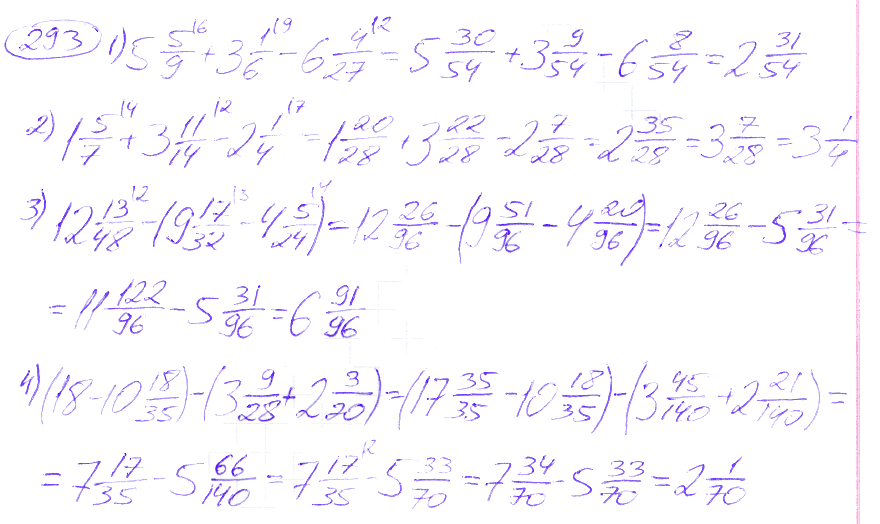 293 1) 5 5/9 |6 + 3 1/6 |9 - 6 4/27 |2 = 5 30/54 + 3 9/54 - 6 8/54 = 2 31/54
2) 1 5/7 |4 + 3 11/14 |2 - 2 1/4 |7 = 1 20/28 + 3 22/28 - 2 7/28 = 2 35/28 = 3 7/28 = 3 1/4
3) 12 13/48 |2 - (9 17/32 |3 - 4 5/24 |4) = 12 26/96 - (9 51/96 - 4 20/96) = 12 26/96 - 5 31/96 =
= 11 122/96 - 5 31/96 = 6 91/96
4) (18 - 10 18/35) - (3 9/28 + 2 3/20) = (17 35/35 - 10 18/35) - (3 45/140 + 2 21/140) =
= 7 17/35 - 5 66/140 = 7 17/35 |2 - 5 33/70 = 7 34/70 - 5 33/70 = 2 1/70